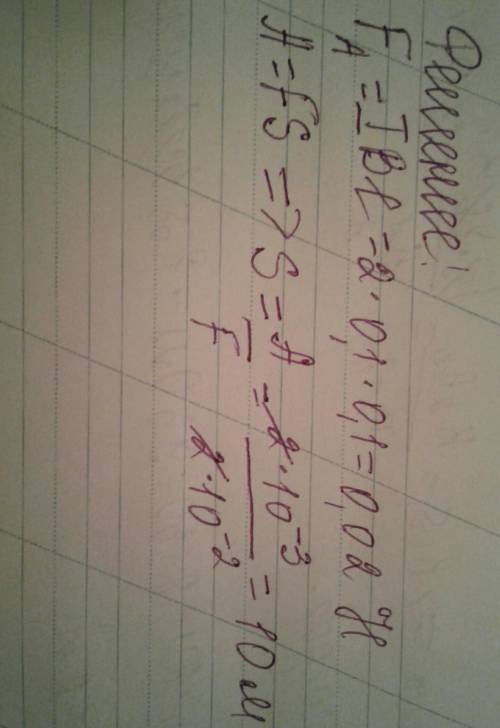 Решение:
F_A = IBl = 2 · 0,1 · 0,1 = 0,02 Н
A = FS => S = A/F = 2·10⁻³/2·10⁻² = 10 м